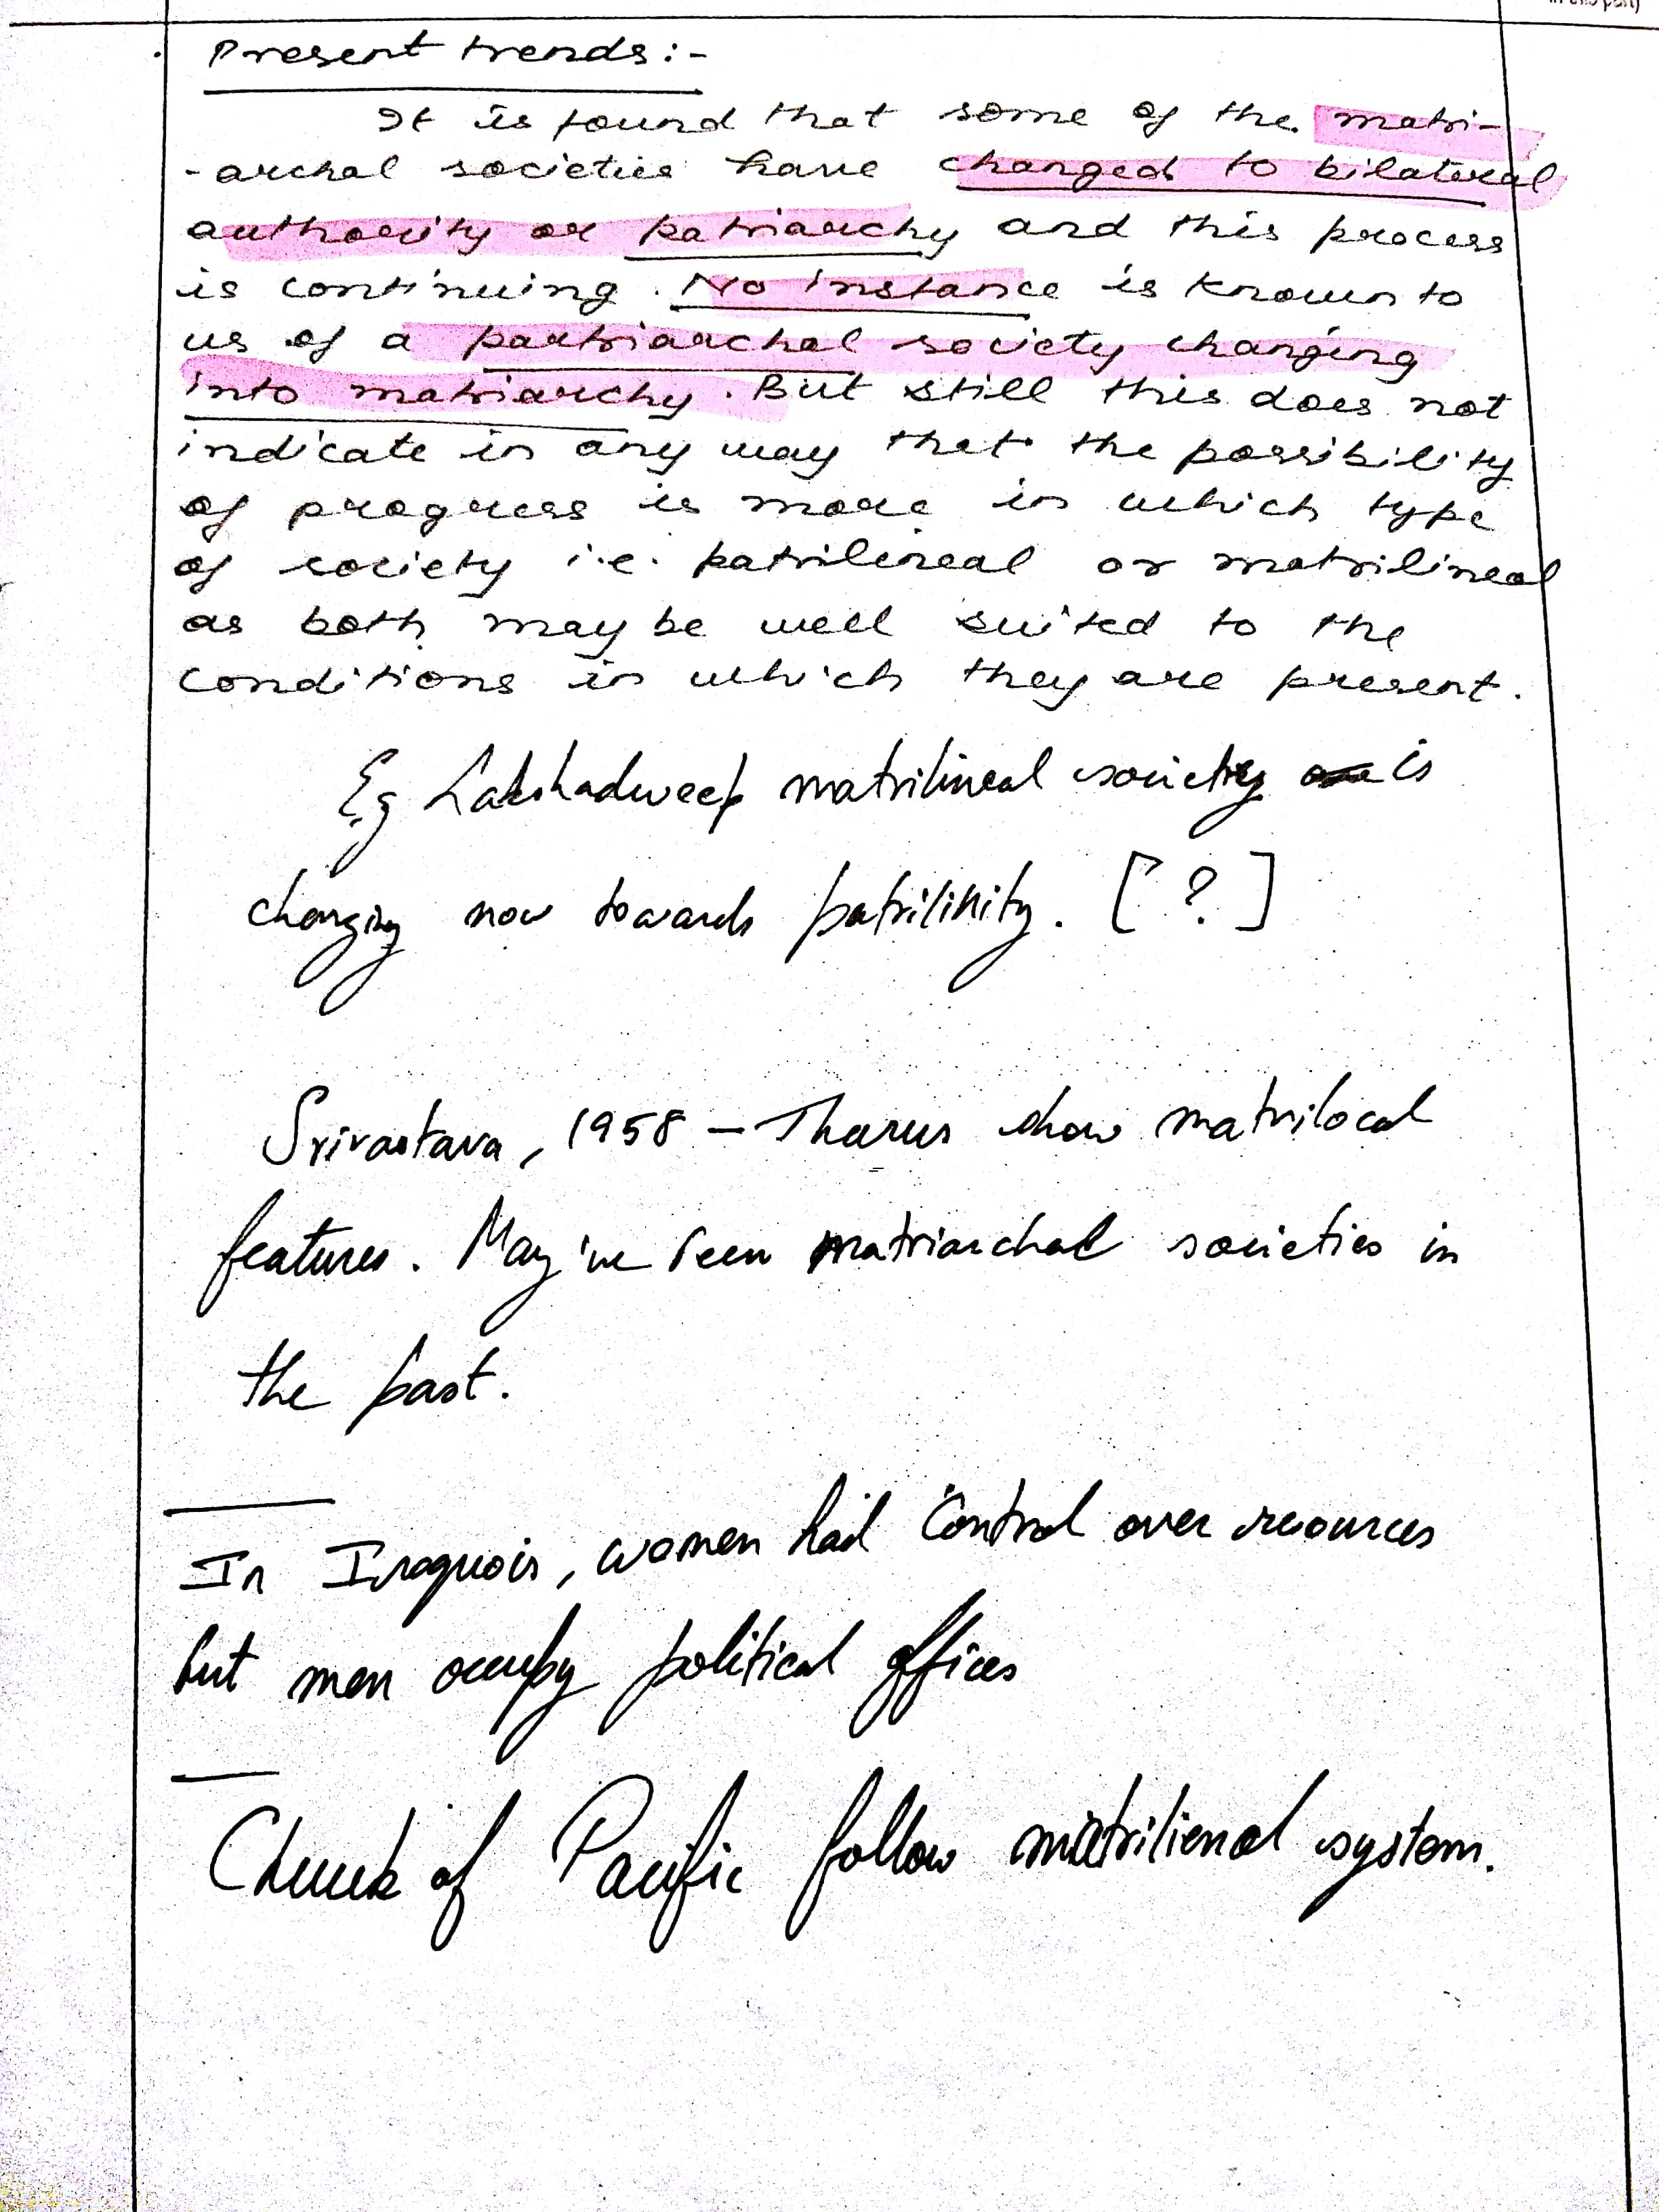 in this part)
Present trends:-
It is found that some of the matri-
-archal societies have changed to bilateral
authority or patriarchy and this process
is continuing. No instance is known to
us of a partriarchal society changing
into matriarchy. But still this does not
indicate in any way that the possibility
of progress is more in which type
of society i.e. patrilineal or matrilineal
as both may be well suited to the
conditions in which they are present.
Eg Lakshadweep matrilineal society is
changing now towards patrilinity. [ ? ]
Srivastava, 1958 – Tharus show matrilocal
features. May've been matriarchal societies in
the past.
In Iroquois, women had control over resources
but men occupy political offices
Chuuk of Pacific follow matrilienal system.